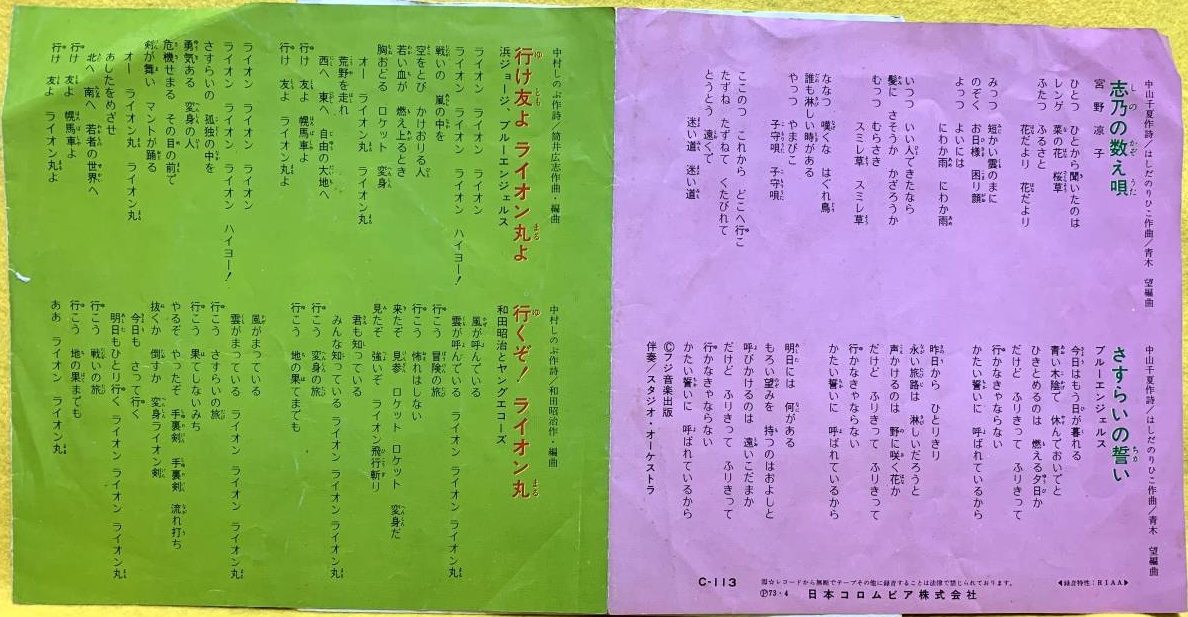 中山千夏作詩/はしだのりひこ作曲/青木 望編曲
志乃の数え唄
宮野涼子
ひとつ ひとから聞いたのは
レンゲ 菜の花 桜草
ふたつ ふるさと
花だより 花だより
みっつ 短かい雲のまに
のぞく お日様 困り顔
よっつ よいには
にわか雨 にわか雨
いつつ いい人できたなら
髪に さそうか かざろうか
むっつ むらさき
スミレ草 スミレ草
ななつ 嘆くな はぐれ鳥
誰も淋しい時がある
やっつ やまびこ
子守唄 子守唄
ここのつ これから どこへ行こ
たずね たずねて くたびれて
とうとう 遠くて
迷い道 迷い道
中山千夏作詩/はしだのりひこ作曲/青木 望編曲
さすらいの誓い
ブルーエンジェルス
今日はもう日が暮れる
青い木陰で 休んでおいでと
ひきとめるのは 燃える夕日か
だけど ふりきって ふりきって
行かなきゃならない
かたい誓いに 呼ばれているから
昨日から ひとりきり
永い旅路は 淋しいだろうと
声かけるのは 野に咲く花か
だけど ふりきって ふりきって
行かなきゃならない
かたい誓いに 呼ばれているから
明日には 何がある
もろい望みを 持つのはおよしと
呼びかけるのは 遠いこだまか
だけど ふりきって ふりきって
行かなきゃならない
かたい誓いに 呼ばれているから
Ⓒフジ音楽出版
伴奏/スタジオ・オーケストラ
C-113
☆レコードから無断でテープその他に録音することは法律で禁じられております。
◀録音特性:RIAA▶
Ⓟ73・4 日本コロムビア株式会社
中村しのぶ作詩/筒井広志作曲・編曲
行け友よ ライオン丸よ
浜ジョージ ブルーエンジェルス
ライオン ライオン ライオン
ライオン ライオン ライオン ハイヨー!
戦いの 嵐の中を
空をとび かけおりる人
若い血が 燃え上るとき
胸おどる ロケット 変身
オー ライオン丸 ライオン丸
荒野を走れ
西へ 東へ 自由の大地へ
行け 友よ 幌馬車よ
行け 友よ ライオン丸よ
ライオン ライオン ライオン
ライオン ライオン ライオン ハイヨー!
さすらいの 孤独の中を
勇気ある 変身の人
危機せまる その目の前で
剣が舞い マントが踊る
オー ライオン丸 ライオン丸
あしためざせ
北へ 南へ 若者の世界へ
行け 友よ 幌馬車よ
行け 友よ ライオン丸よ
中村しのぶ作詩/和田昭治作・編曲
行くぞ! ライオン丸
和田昭治とヤングエコーズ
風が呼んでいる
雲が呼んでいる ライオン ライオン ライオン丸
行こう 冒険の旅
行こう 怖れはしない
来たぞ 見参 ロケット ロケット 変身だ
見たぞ 強いぞ ライオン飛行斬り
君も知っている
みんな知っている ライオン ライオン ライオン丸
行こう 変身の旅
行こう 地の果てまでも
風がまっている
雲がまっている ライオン ライオン ライオン丸
行こう さすらいの旅
行こう 果てしないみち
やるぞ やったぞ 手裏剣 手裏剣 流れ打ち
抜くか 倒すか 変身ライオン剣
今日も さって行く
明日もひとり行く ライオン ライオン ライオン丸
行こう 戦いの旅
行こう 地の果までも
ああ ライオン ライオン ライオン丸